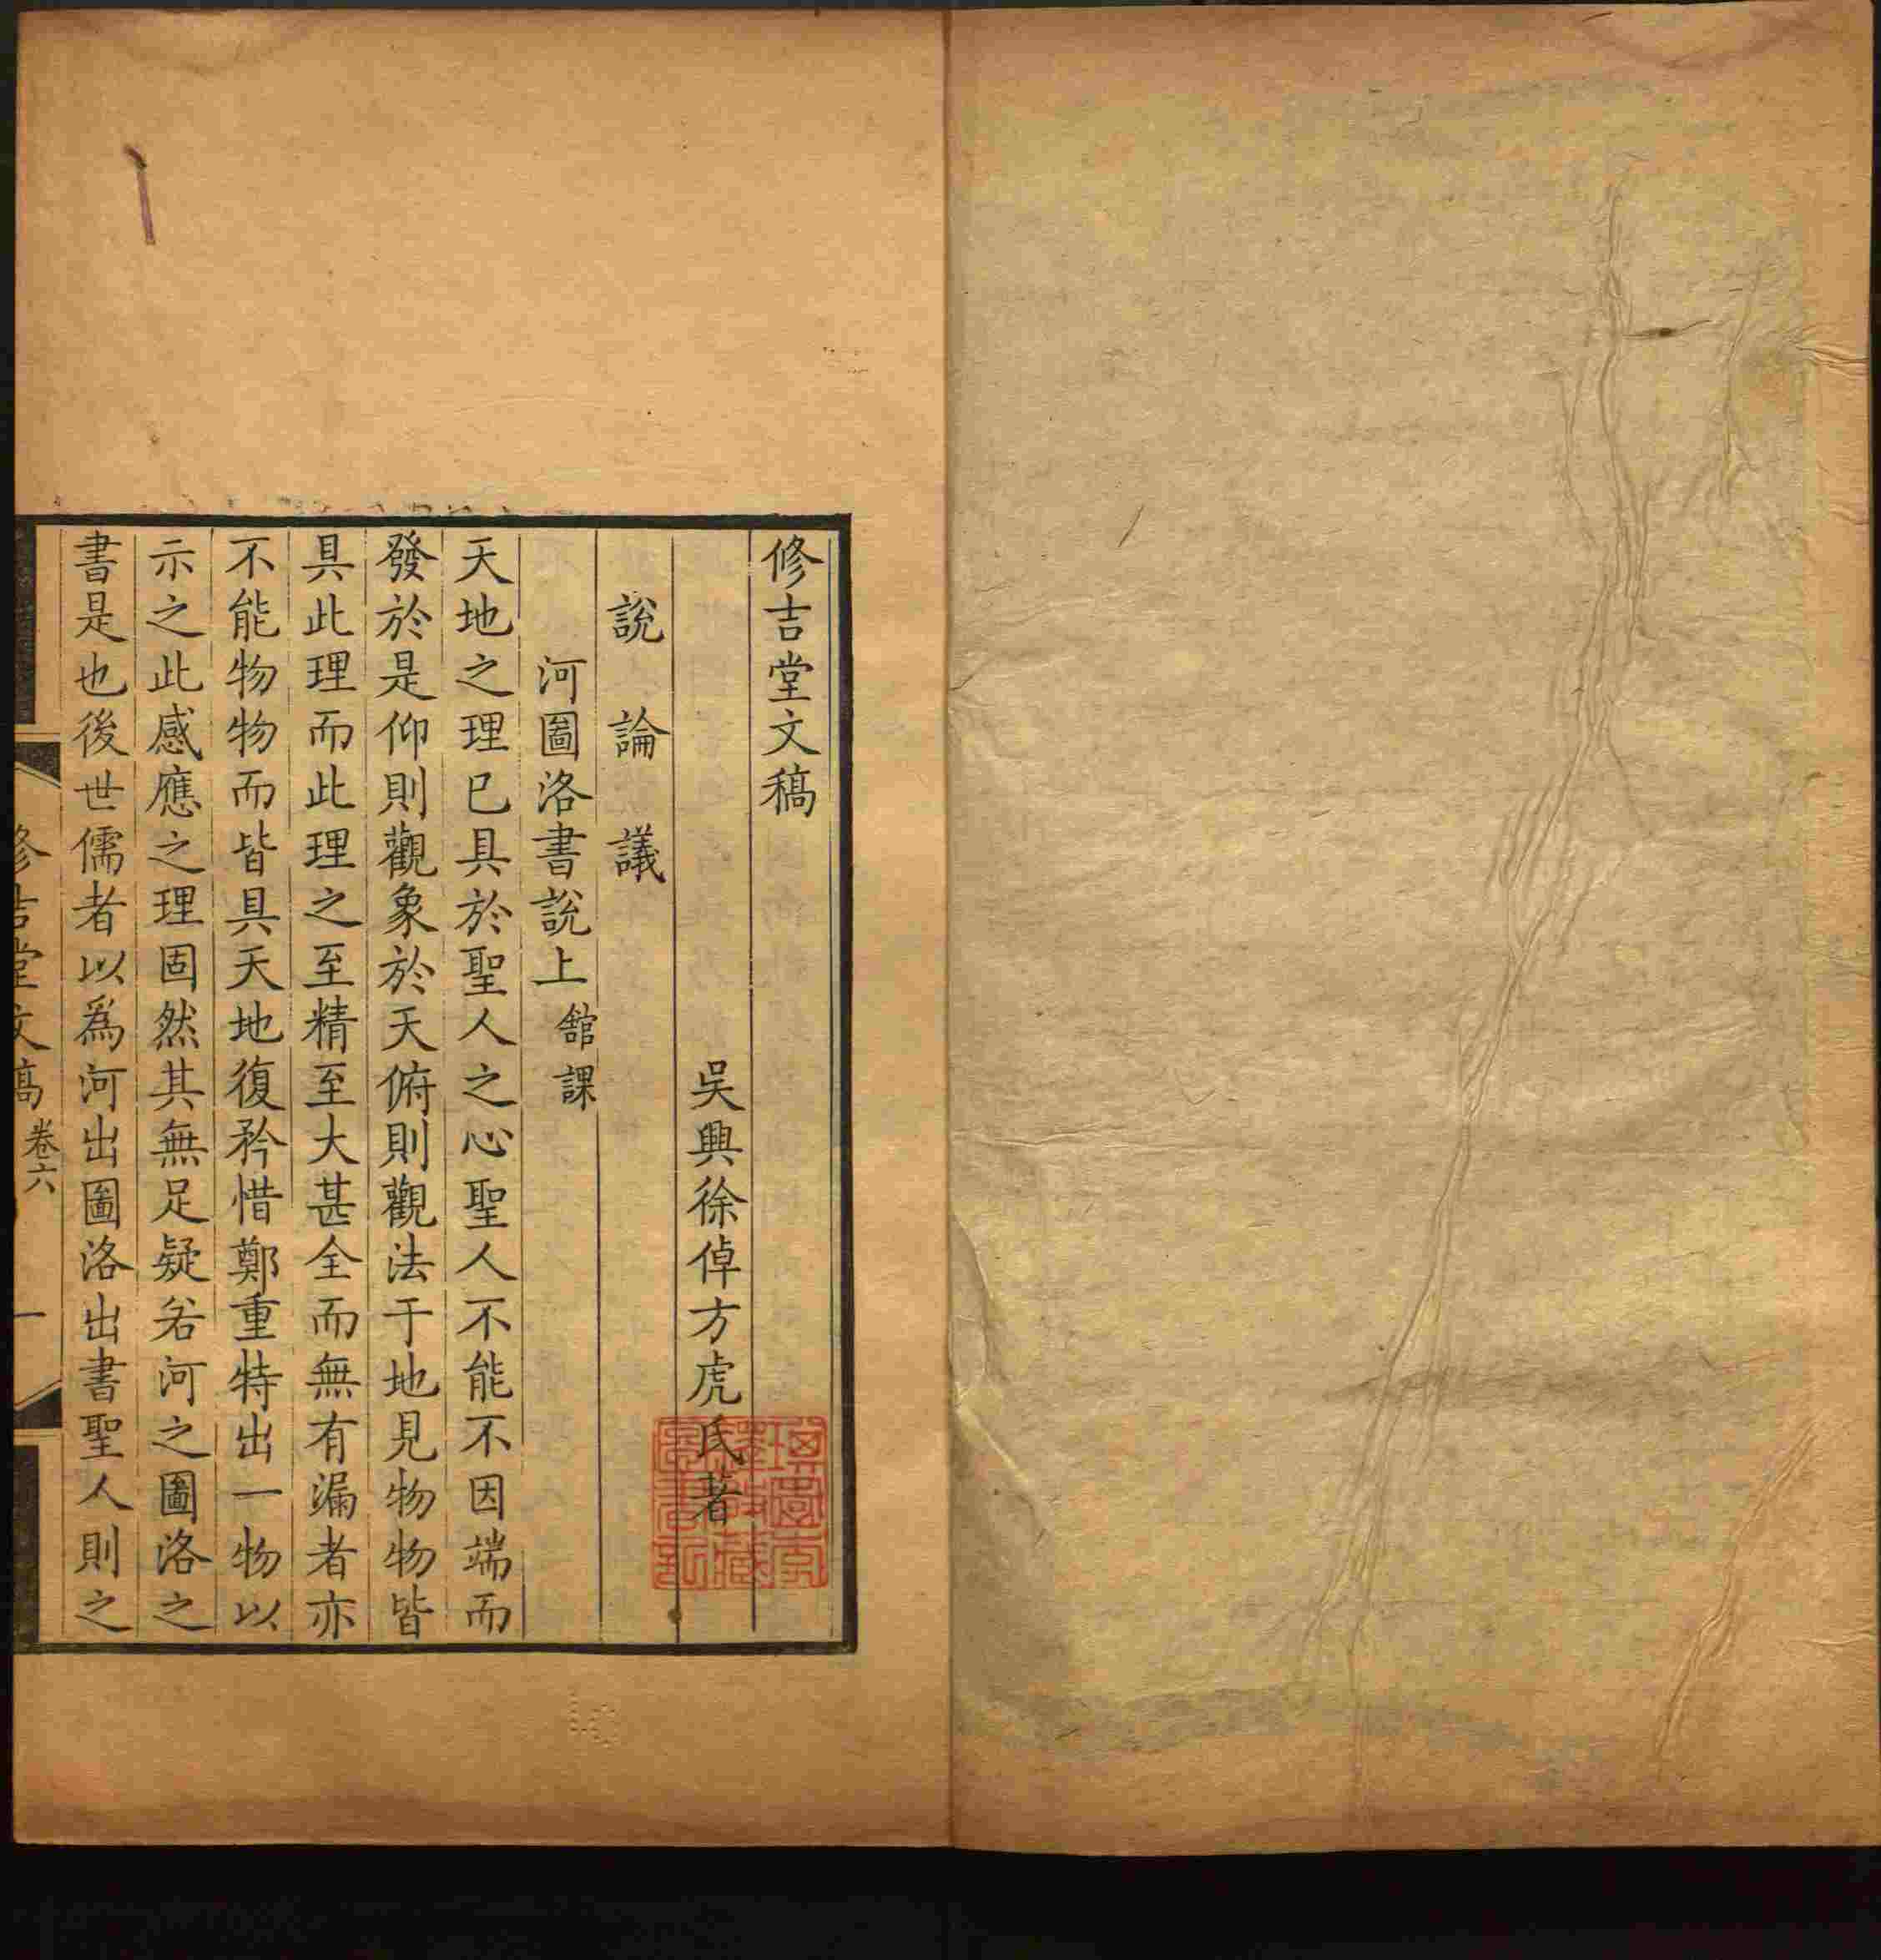 修吉堂文稿
吳興徐倬方虎氏著
說　論　議
河圖洛書說上 舘課
天地之理已具於聖人之心聖人不能不因端而
發於是仰則觀象於天俯則觀法于地見物物皆
具此理而此理之至精至大甚全而無有漏者亦
不能物物而皆具天地復矜惜鄭重特出一物以
示之此感應之理固然其無足疑若河之圖洛之
書是也後世儒者以爲河出圖洛出書聖人則之
修吉堂文稿 卷六 一